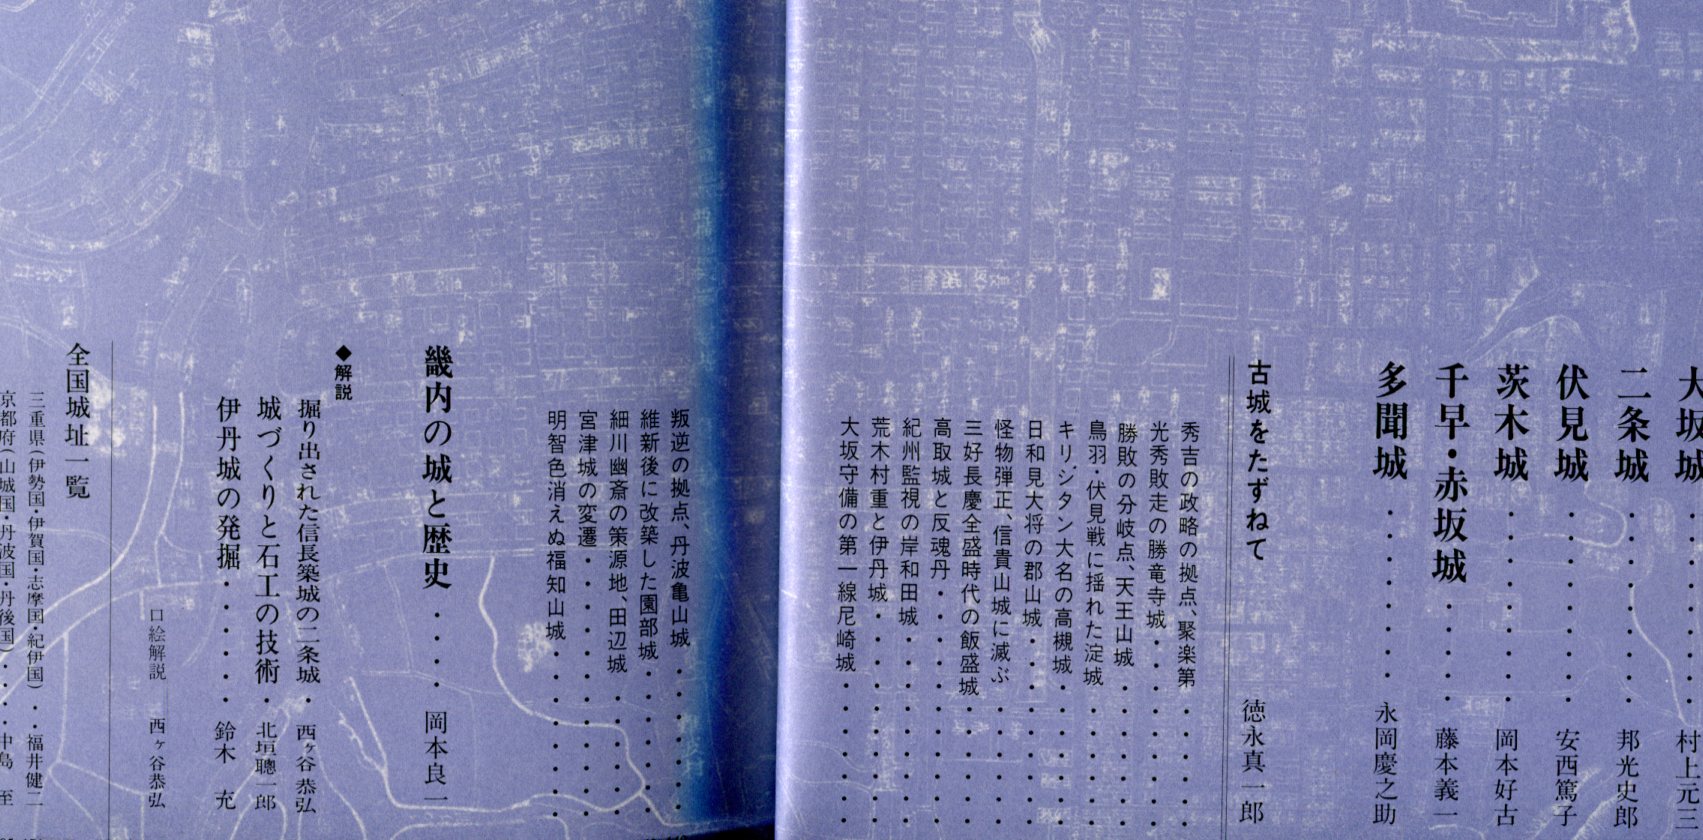 大坂城 村上元三
二条城 邦光史郎
伏見城 安西篤子
茨木城 岡本好古
千早・赤坂城 藤本義一
多聞城 永岡慶之助
古城をたずねて 徳永真一郎
秀吉の政略の拠点、聚楽第
光秀敗走の勝竜寺城
勝敗の分岐点、天王山城
鳥羽・伏見戦に揺れた淀城
キリシタン大名の高槻城
日和見大将の郡山城
怪物弾正、信貴山城に滅ぶ
三好長慶全盛時代の飯盛城
高取城と反魂丹
紀州監視の岸和田城
荒木村重と伊丹城
大坂守備の第一線尼崎城
叛逆の拠点、丹波亀山城
維新後に改築した園部城
細川幽斎の策源地、田辺城
宮津城の変遷
明智色消えぬ福知山城
畿内の城と歴史 岡本良一
◆解説
掘り出された信長築城の二条城 西ヶ谷恭弘
城づくりと石工の技術 北垣聰一郎
伊丹城の発掘 鈴木 充
口絵解説 西ヶ谷恭弘
全国城址一覧
三重県(伊勢国・伊賀国・志摩国・紀伊国) 福井健二
京都府(山城国・丹波国・丹後国) 中島 至